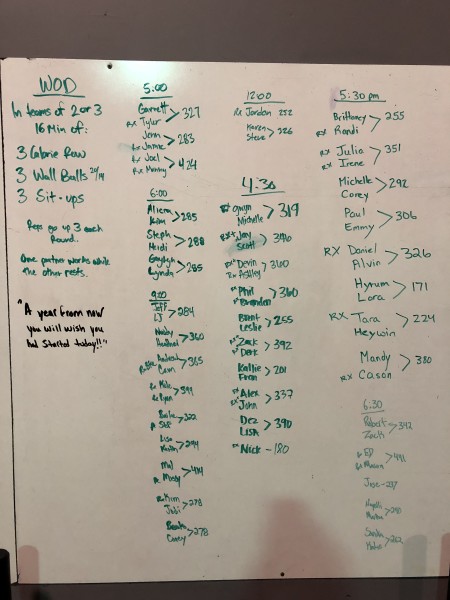 WOD
In teams of 2 or 3
16 Min of:
3 Calorie Row
3 Wall Balls 20/14
3 Sit-ups
Reps go up 3 each
Round.
One partner works while
the other rests.
"A year from now
you will wish you
had started today!!"
5:00
Garrett
Rx Tyler > 327
Jenn
Rx Jamie > 283
Rx Joel
Rx Manny > 424
6:00
Kim > 285
Steph
Heidi > 288
Lyndn > 285
9:00
Jeff
LJ > 284
> 360
> 365
Rx Mike
Rx Ryan
> 322
Lisa
> 294
Mal
Rx Mindy
Rx Kim
Jodi > 278
Corey > 278
12:00
Rx Jordan 252
Karen
Steve > 226
4:30
Michelle > 319
Jay
Scott > 340
Rx Devin
Rx Ashley > 360
Rx Phil
Brandon > 360
Brent
Leslie > 255
Rx Zack
Rx Derk > 392
Kallie
Fran > 201
Rx Alex
Rx John > 337
Dez
Lisa > 390
Rx Nick - 180
5:30 pm
Brittany
Rx Randi > 255
Rx Julia
Rx Irene > 351
Michelle
Corey > 292
Paul
Emmy > 306
RX Daniel
Alvin > 326
Hyrum
Lora > 171
RX Tara
Heywin > 224
Mandy
RX Cason > 380
6:30
Robert
Zack > 342
Rx ED
> 491
Jose - 237
> 262